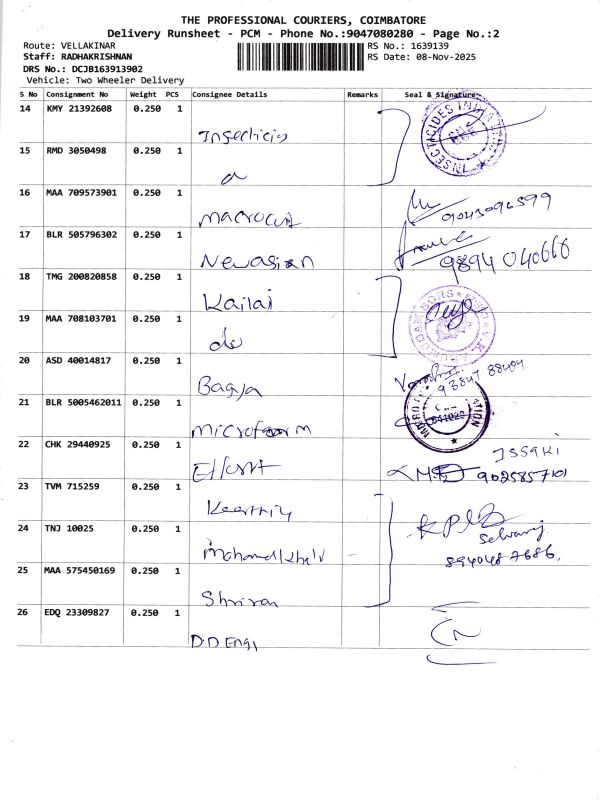 THE PROFESSIONAL COURIERS, COIMBATORE
Delivery Runsheet - PCM - Phone No.:9047080280 - Page No.:2
Route: VELLAKINAR RS No.: 1639139
Staff: RADHAKRISHNAN RS Date: 08-Nov-2025
DRS No.: DCJB163913902
Vehicle: Two Wheeler Delivery
S No Consignment No Weight PCS Consignee Details Remarks Seal & Signature
14 KMY 21392608 0.250 1
15 RMD 3050498 0.250 1
16 MAA 709573901 0.250 1
macrocut
9043096599
17 BLR 505796302 0.250 1
Newasian
9894040666
18 TMG 200820858 0.250 1
Kailai
19 MAA 708103701 0.250 1
do
20 ASD 40014817 0.250 1
Bagya
93847 88404
21 BLR 5005462011 0.250 1
microform
22 CHK 29440925 0.250 1
Effort
ISSAKI
9025857101
23 TVM 715259 0.250 1
Keerthy
24 TNJ 10025 0.250 1
Selvaraj
25 MAA 575450169 0.250 1
Shriran
26 EDQ 23309827 0.250 1
DD Engi